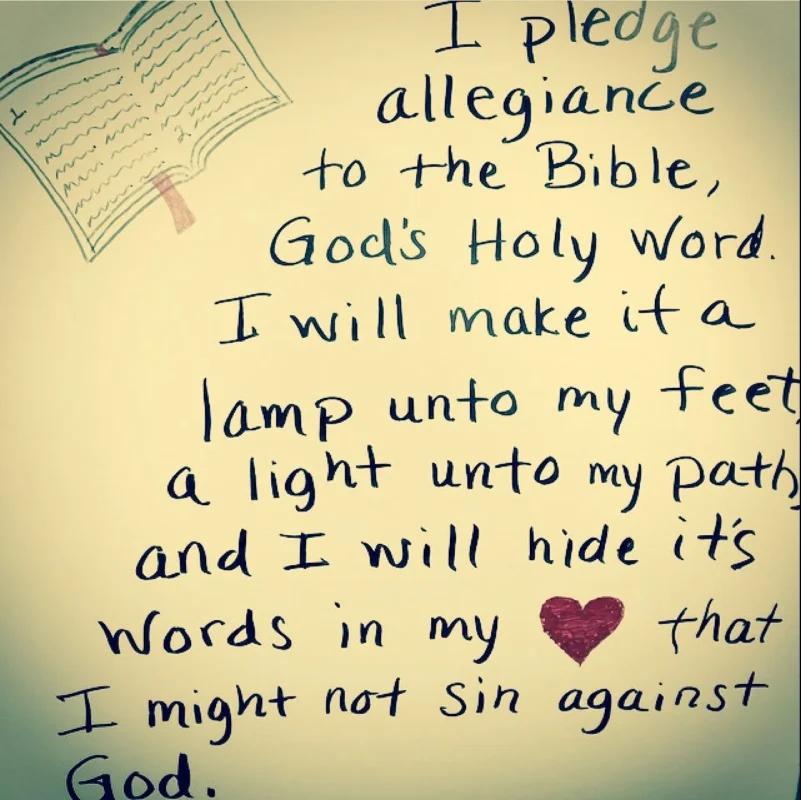 I pledge
allegiance
to the Bible,
God's Holy Word.
I will make it a
lamp unto my feet,
a light unto my path,
and I will hide it's
words in my ❤ that
I might not sin against
God.
1
2